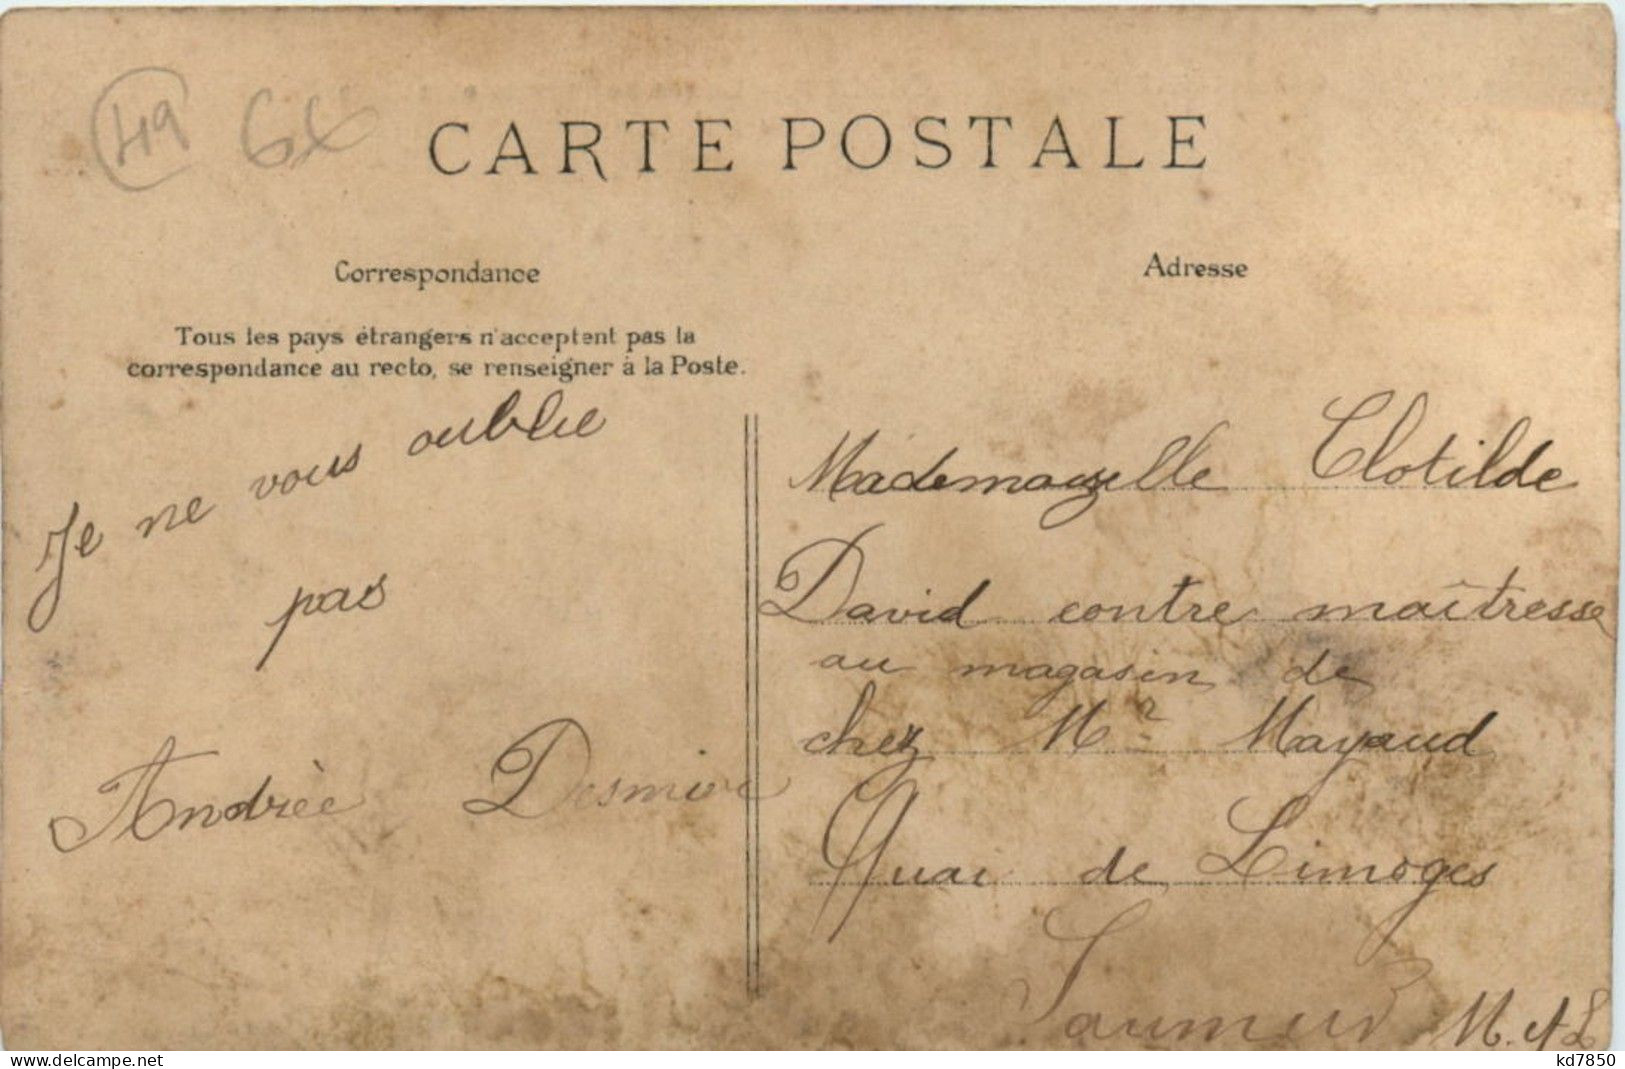 49
CARTE POSTALE
Correspondance
Tous les pays étrangers n'acceptent pas la
correspondance au recto, se renseigner à la Poste.
Je ne vous oublie
pas
Andrée
Adresse
Mademoizelle Clotilde
David contre maîtresse
au magasin de
chez Mr Mayaud
Quai de Limoges
Saumur M. et L
www.delcampe.net
kd7850